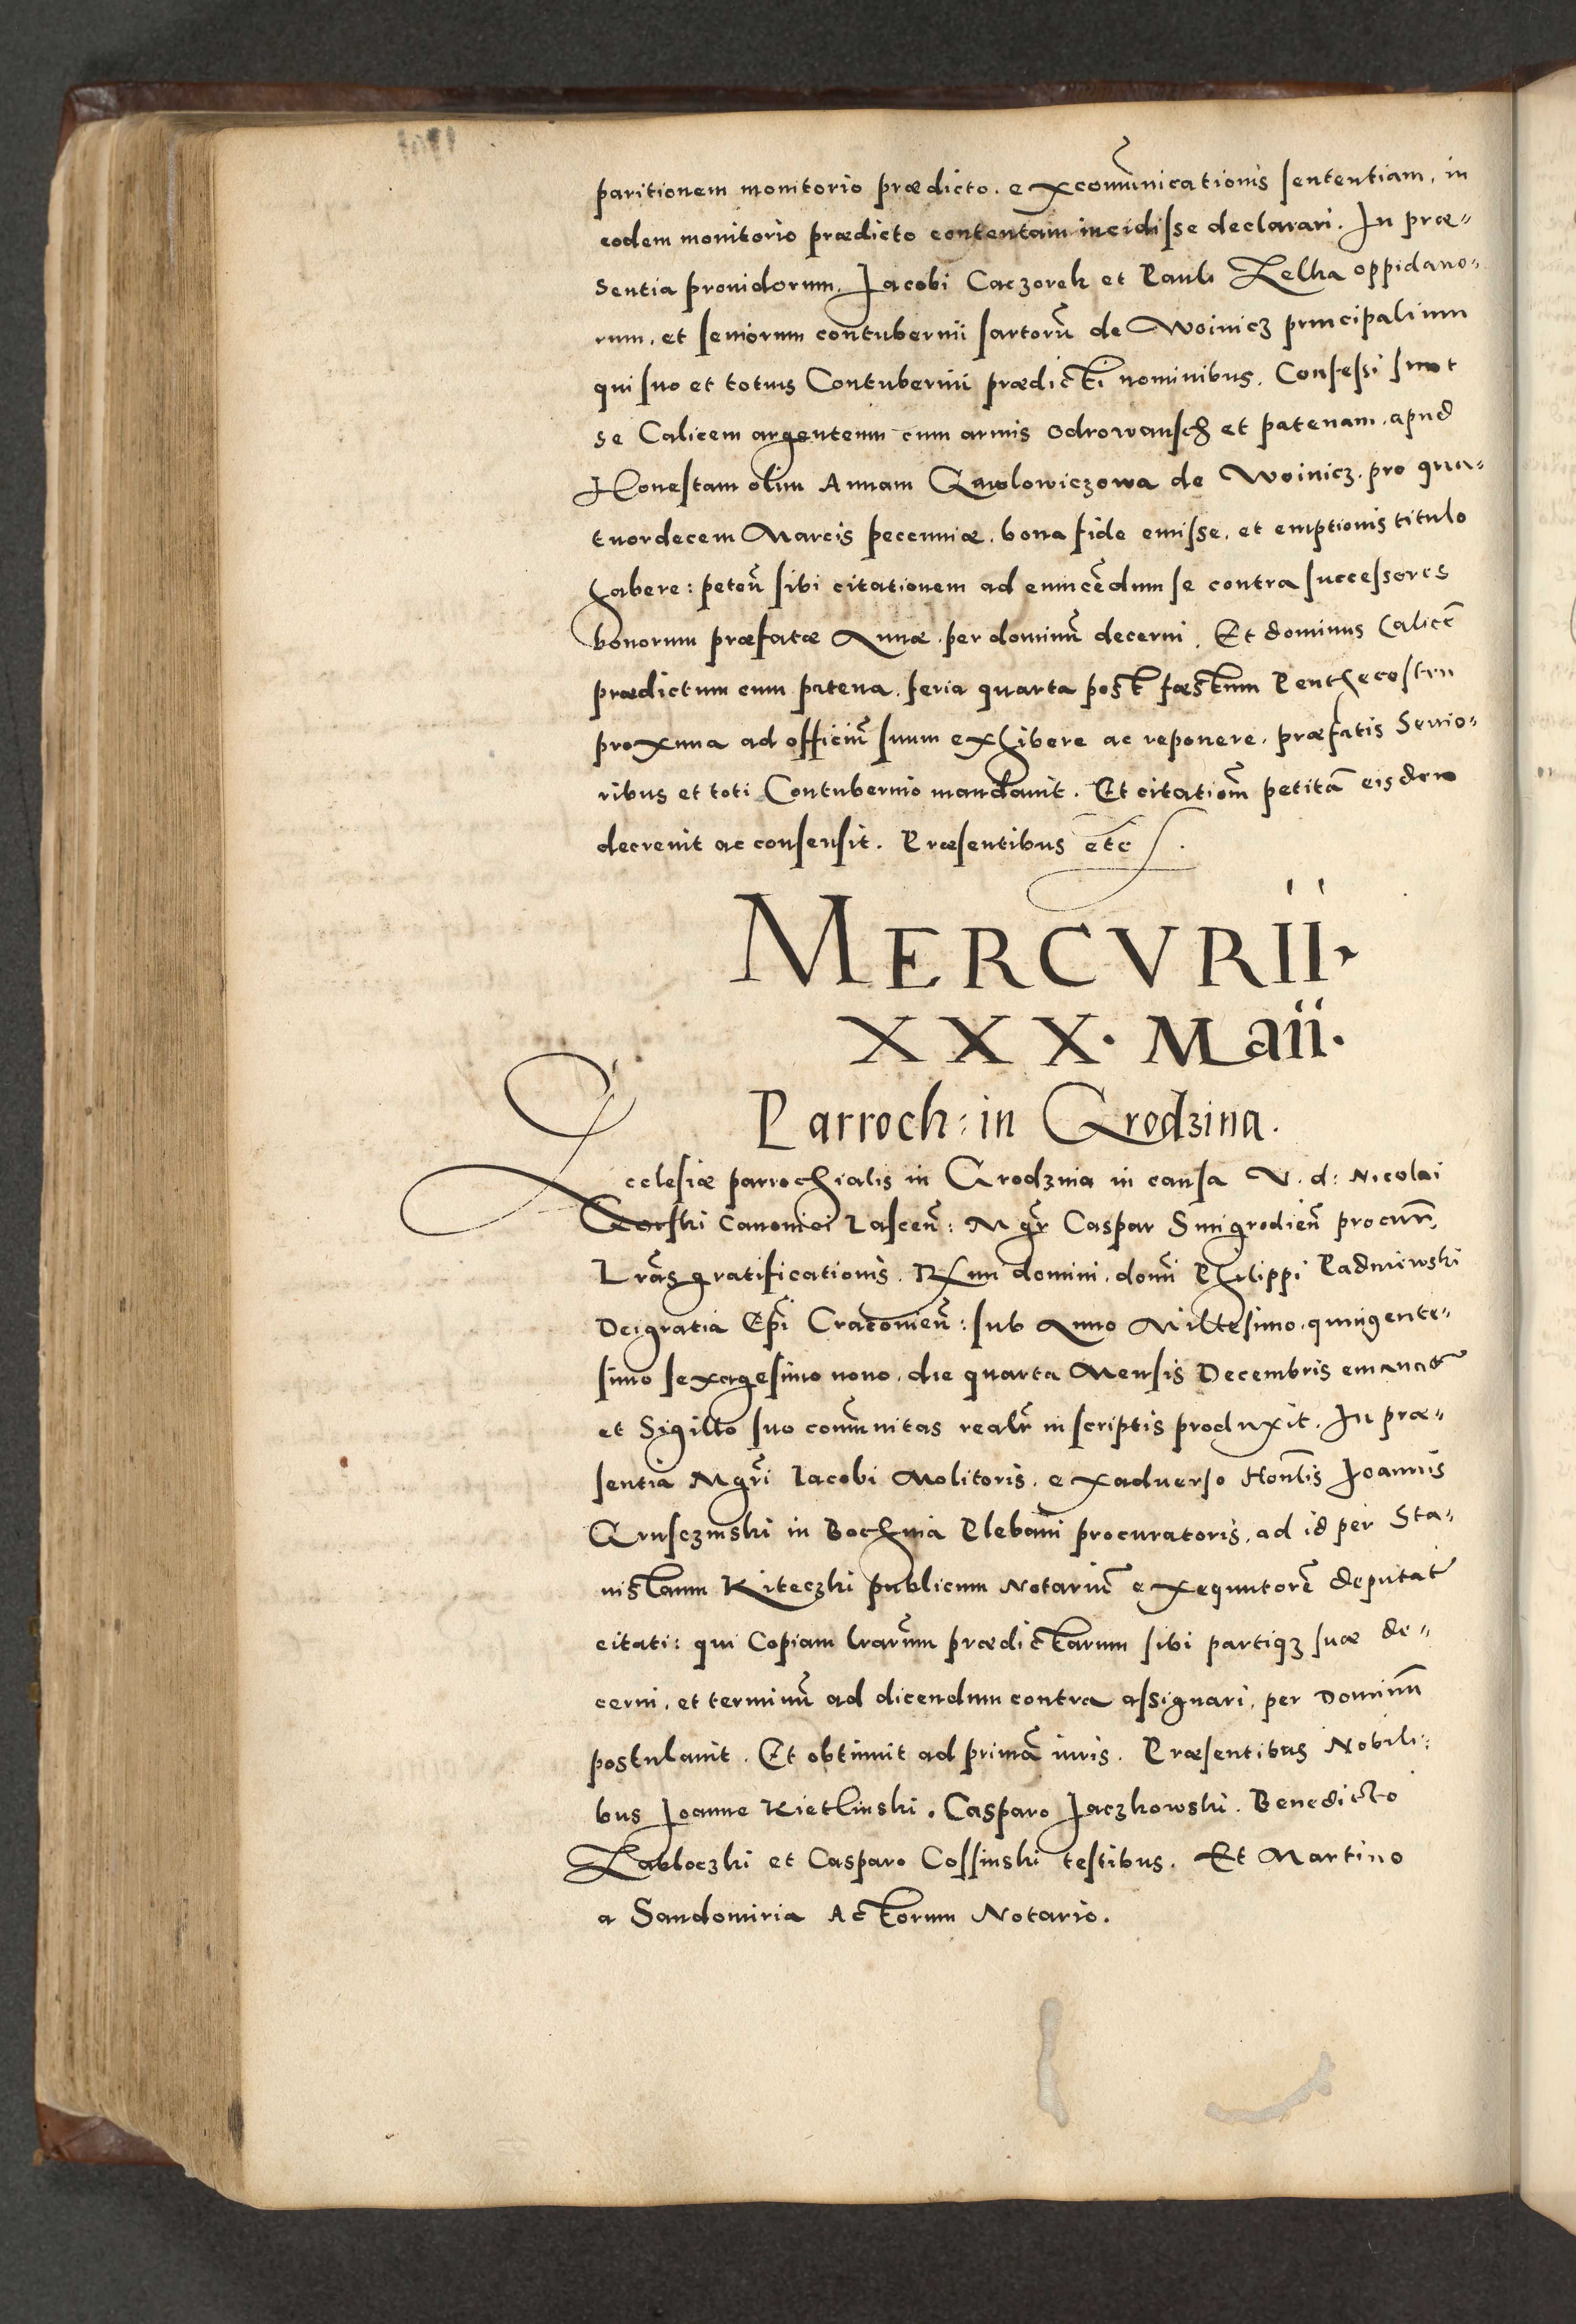 paritionem monitorio prædicto. excom̃unicationis sententiam, in
eodem monitorio prædicto contentam incidisse declarari. In præ-
sentia prouidorum, Jacobi Caczorek et Pauli Zelka oppidano-
rum, et seniorum contubernii sartorũ de Woinicz principalium
qui suo et totius Contubernii prædicti nominibus, Confessi sunt
se Calicem argenteum cum armis Odrowansch et patenam, apud
Honestam olim Annam Gmolowiczowa de Woinicz, pro qua-
tuordecem Marcis pecenniæ, bona fide emisse, et emptionis titulo
habere: peteñ sibi citationem ad euincẽdum se contra successores
bonorum præfatæ Annæ, per dominũ decerni. Et dominus Calicẽ
prædictum cum patena, feria quarta post fæstum Penthecosten
proxima ad officiũ suum exhibere ac reponere, præfatis Senio-
ribus et toti Contubernio mandauit. Et citatiom̃ petitã eisdem
decreuit ac consensit. Præsentibus etc.
MERCVRII.
XXX. Maii.
Parroch: in Grodzina.
Ecclesiæ parrochialis in Grodznia in causa V. d: Nicolai
Gorski Canonici Lasceñ: Mgr̃ Caspar Smigrodieñ procurr̃,
Lrãs gratificationis, Rxmi domini, domĩ Philippi Padniewski
Dei gratia Epĩ Cracouieñ: sub Anno Millesimo, quingente-
simo sexagesimo nono, die quarta Mensis Decembris emanat̃
et Sigillo suo com̃unitas realr̃ in scriptis produxit. In præ-
sentia Mgrĩ Iacobi Molitoris, exaduerso Hontĩs Joannis
Gruscziński in Bochnia Plebani procuratoris, ad id per Sta-
nislaum Kiteczki publicum Notariũ exequutorẽ deputat̃
citati: qui Copiam lrarũm prædictarum sibi partiqz suæ de-
cerni, et terminũ ad dicendum contra assignari, per Dominũ
postulauit. Et obtinuit ad primã iuris. Præsentibus Nobili-
bus Joanne Kietlinski, Casparo Jaczkowski, Benedicto
Zabloczki et Casparo Cossinski testibus. Et Martino
a Sandomiria Actorum Notario.